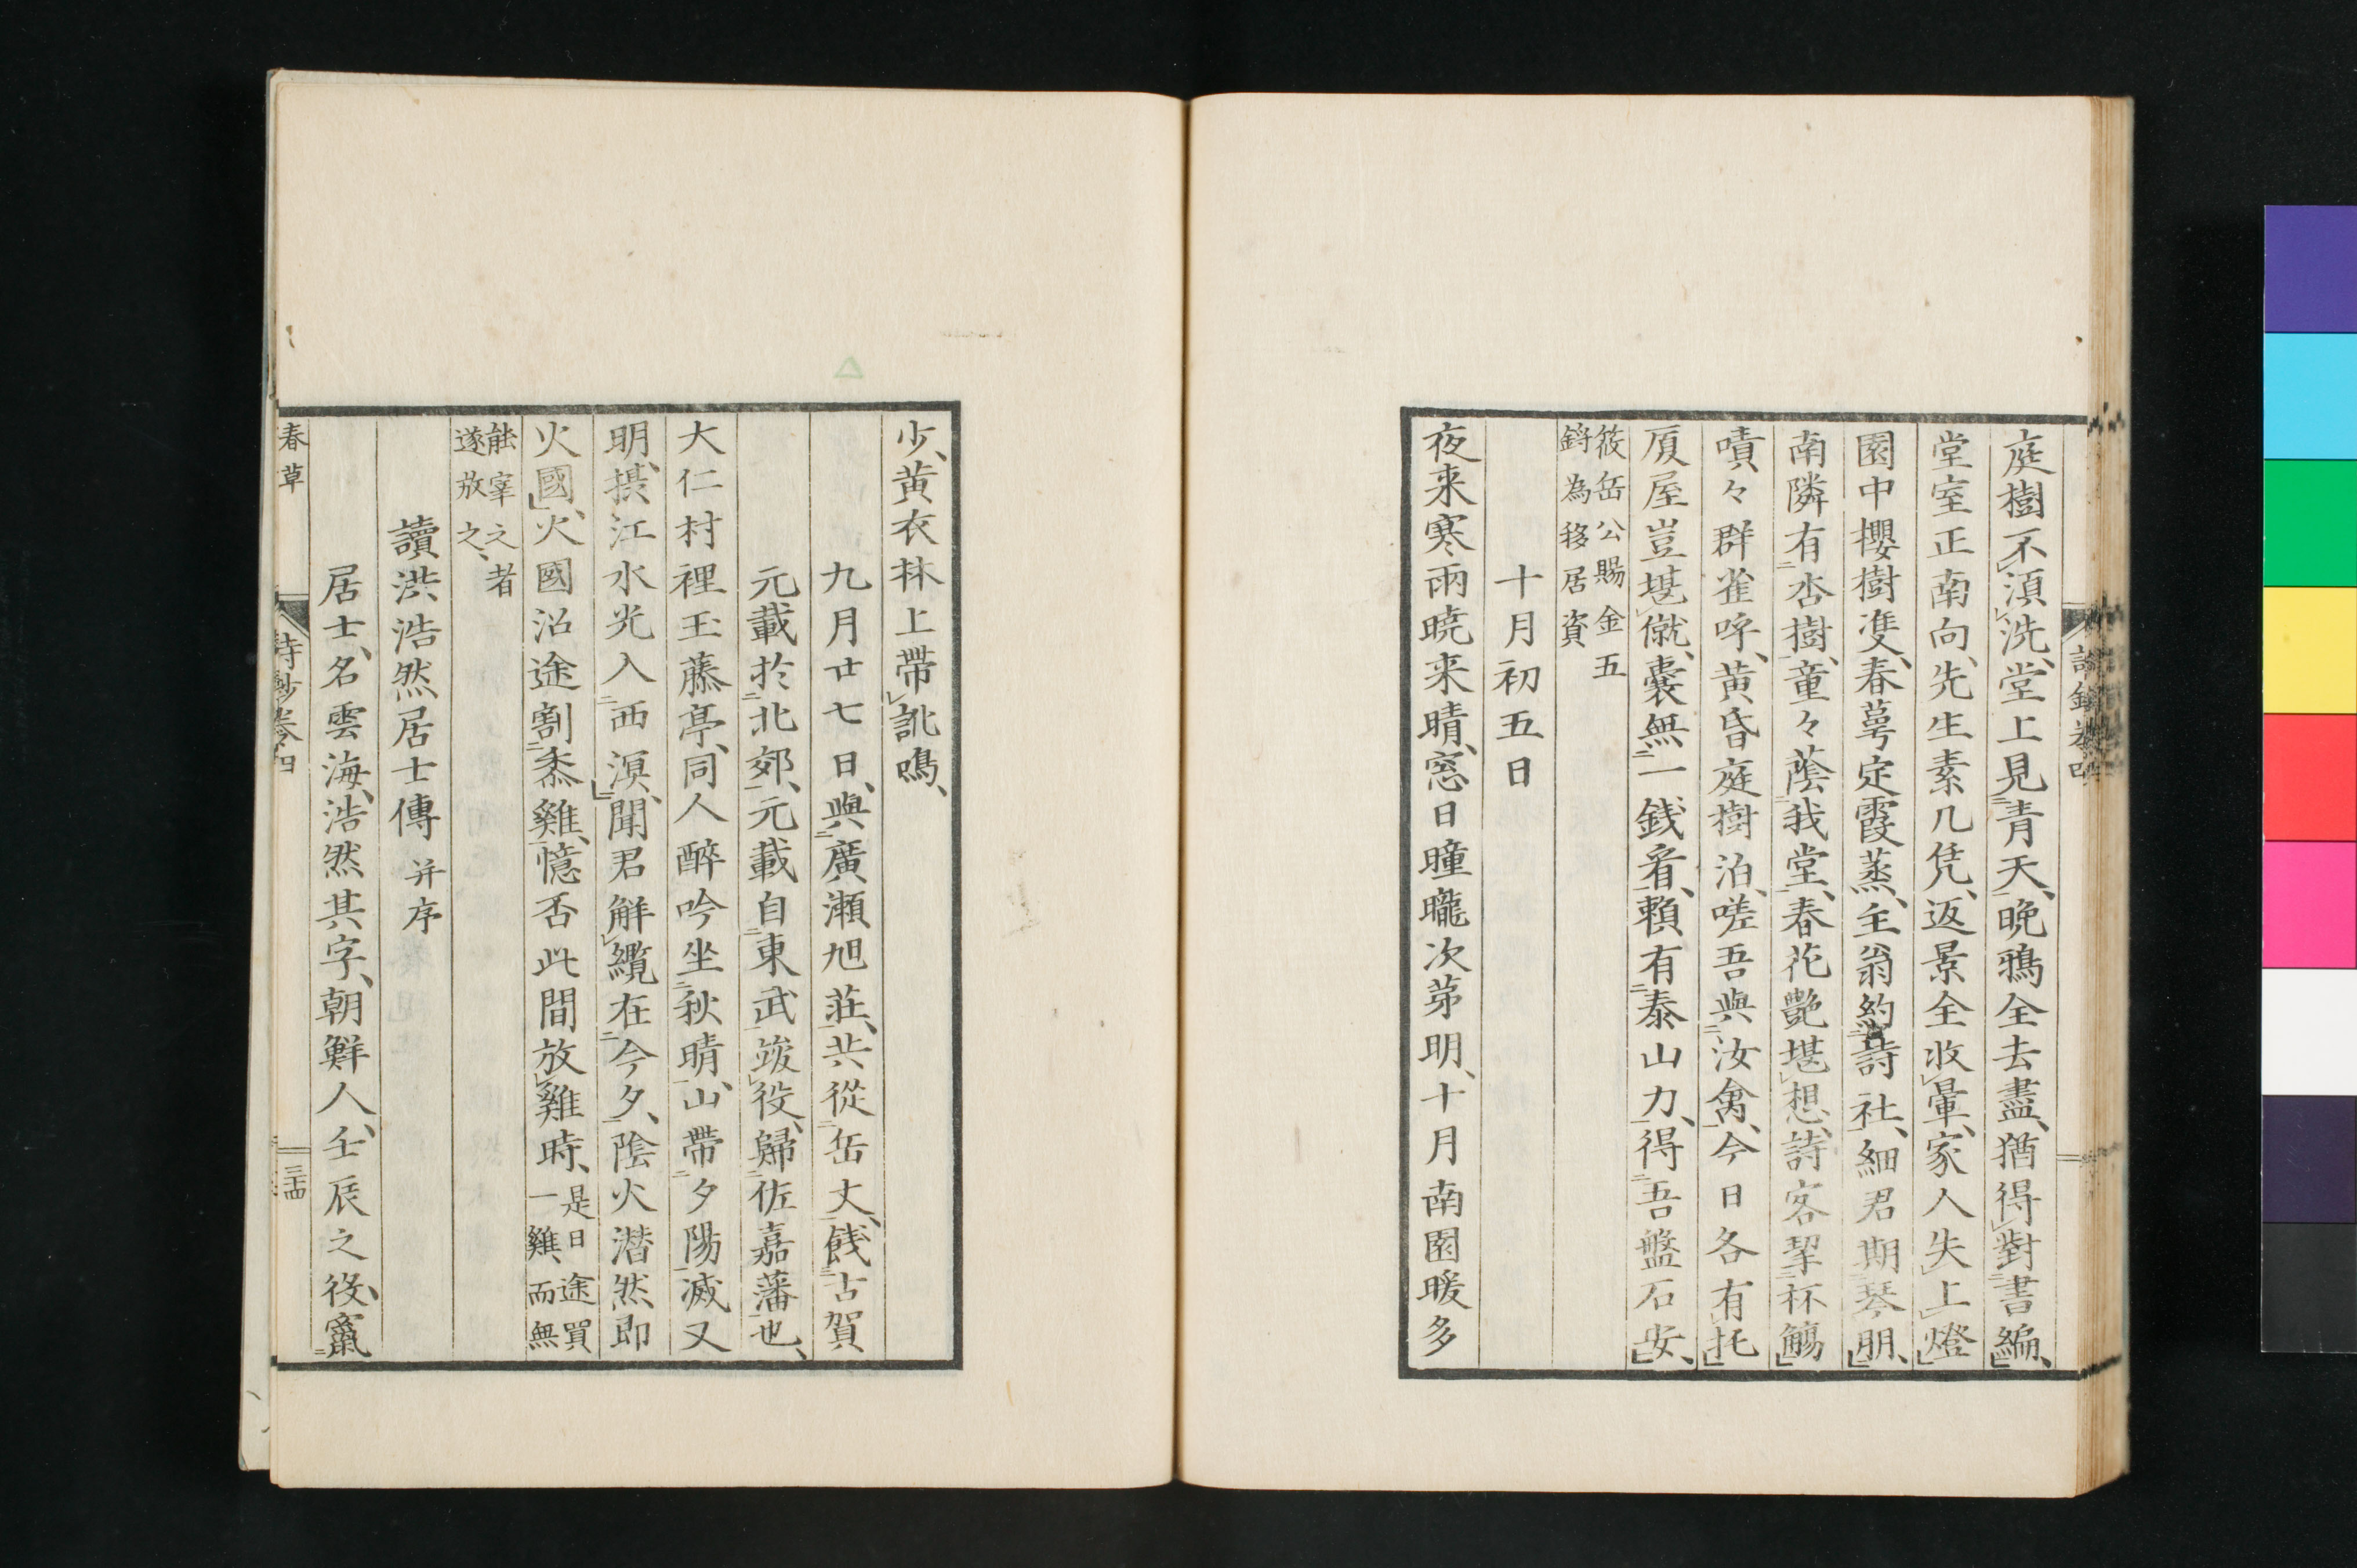 庭樹不須洗、堂上見青天、晩鴉全去盡、猶得對書編、
堂室正南向、先生素几凭、返景全收暈、家人失上燈
園中櫻樹隻、春萼定霞蒸、主翁約詩社、細君期琴朋、
南隣有杏樹、童々蔭我堂、春花艷堪想、詩客挈杯觴
嘖々群雀呼、黄昏庭樹泊、嗟吾與汝禽、今日各有托
厦屋豈堪僦、嚢無一錢看、頼有泰山力、得吾盤石安、
筱岳公賜金五
鎊為移居資
十月初五日
夜来寒雨暁来晴、窓日曈曨次苐明、十月南園暖多
少、黄衣林上帶訛鳴、
九月廿七日、與廣瀬旭莊、共從岳丈、餞古賀
元載於北郊、元載自東武竣役、歸佐嘉藩也、
大仁村裡玉藤亭、同人醉吟坐秋晴、山帶夕陽滅又
明、摂江水光入西溟、聞君解纜在今夕、陰火潜然即
火國、火國沿途割黍雞、憶否此間放雞時、
是日途買
一雞、而無
能宰之者
遂放之、
讀洪浩然居士傳 并序
居士、名雲海、浩然其字、朝鮮人、壬辰之役、竄
春草
詩鈔巻四
三十四